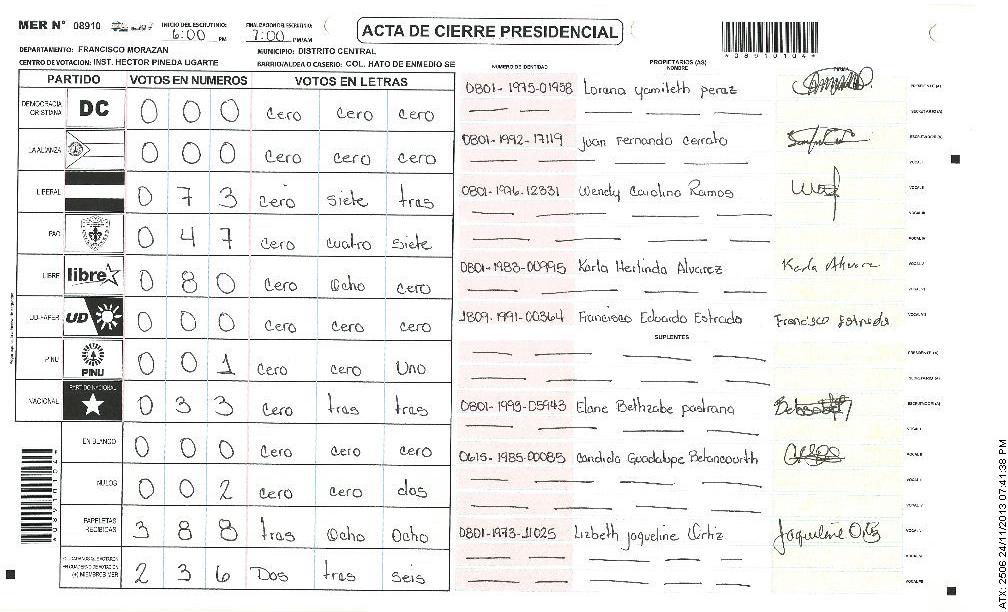 MER N° 08910 INICIO DEL ESCRUTINIO: 6:00 PM FINALIZACION DEL ESCRUTINIO: 7:00 PM/AM ACTA DE CIERRE PRESIDENCIAL
*08910104*
DEPARTAMENTO: FRANCISCO MORAZAN MUNICIPIO: DISTRITO CENTRAL
CENTRO DE VOTACION: INST. HECTOR PINEDA UGARTE BARRIO/ALDEA O CASERIO: COL. HATO DE ENMEDIO SE
NUMERO DE IDENTIDAD PROPIETARIOS (AS) NOMBRE FIRMA
PARTIDO VOTOS EN NUMEROS VOTOS EN LETRAS
DEMOCRACIA CRISTIANA DC 0 0 0 cero cero cero
LA ALIANZA 0 0 0 cero cero cero
LIBERAL 0 7 3 cero siete tras
PAC 0 4 7 cero cuatro siete
LIBRE libre 0 8 0 cero Ocho cero
UD-FAPER UD 0 0 0 cero cero cero
PINU PINU 0 0 1 cero cero Uno
NACIONAL PARTIDO NACIONAL 0 3 3 cero tras tras
EN BLANCO 0 0 0 cero cero cero
NULOS 0 0 2 cero cero dos
PAPELETAS RECIBIDAS 3 8 8 tras Ocho Ocho
(+) MIEMBROS MER 2 3 6 Dos tras seis
0801-1975-01958 Lorana yamileth peraz PRESIDENTE (A)
SECRETARIO (A)
0801-1992-17119 Juan Fernando cerrato ESCRUTADOR (A)
VOCAL I
0801-1976-12331 Wendy Carolina Ramos VOCAL II
VOCAL III
VOCAL IV
0801-1983-00995 Karla Herlinda Alvarez Karla Alvarez VOCAL V
VOCAL VI
1809-1991-00364 Francisco Eduardo Estrada Francisco Estrada VOCAL VII
SUPLENTES
PRESIDENTE (A)
SECRETARIO (A)
0801-1993-05943 Elane Bethzabe pastrana ESCRUTADOR (A)
VOCAL I
0615-1985-00085 candida Guadalupe Betancourth VOCAL II
0801-1973-11025 Lizbeth jaqueline Ortiz Jaqueline Ortiz
VOCAL VII
ATX: 2506 24/11/2013 07:41:38 PM